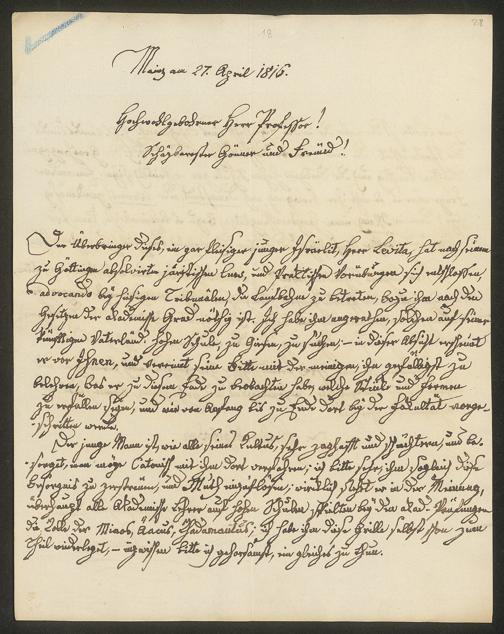 18
28
Mainz am 27. April 1816.
Hochwohlgebohrner Herr Professor!
Schäzbarester Gönner und Freund!
Der Überbringer dieses, ein gar fleisiger junger Israëlit, Herr Levita, hat nach seinem
zu Göttingen absolvirten juristischen Curs, und Praktischen Vorübungen sich entschlossen,
als advocando bey hiesigen Tribunalen, die Laufbahn zu betreten, wozu ihm nach den
Gesetzen der akademische Grad nöthig ist. Ich habe ihm angerathen, solchen auf seiner
künftigen Vaterländ. hohen Schule, zu Giesen, zu suchen; – in dieser Absicht erscheint
er vor Ihnen, und vereinet seine Bitte mit der meinigen, ihn gefälligst zu
belehren, was er zu diesem Ende zu beobachten habe, welche und Formen
zu erfüllen seyen, und wie von Anfang bis zu Ende dort bey der Fakultät vorge-
schritten werde.
Der junge Mann ist, wie alle seines Cultus, sehr zaghafft und schüchtern, und be-
sorget, man möge Catonisch mit ihm dort verfahren; ich bitte sehr, ihm sogleich diese
Besorgnis zu zerstreuen, und Muth einzuflösen; wirklich steht er in der Meinung,
überhaupt alle Akademische Lehrer auf hohen Schulen spielten bey den akad. Prüfungen
die Rolle der Minos, Äacus, Rhadamantus; ich habe ihm diese Grille selbst schon zum
Theil wiederleget, – bitte ich gehorsamst, ein gleiches zu thun.